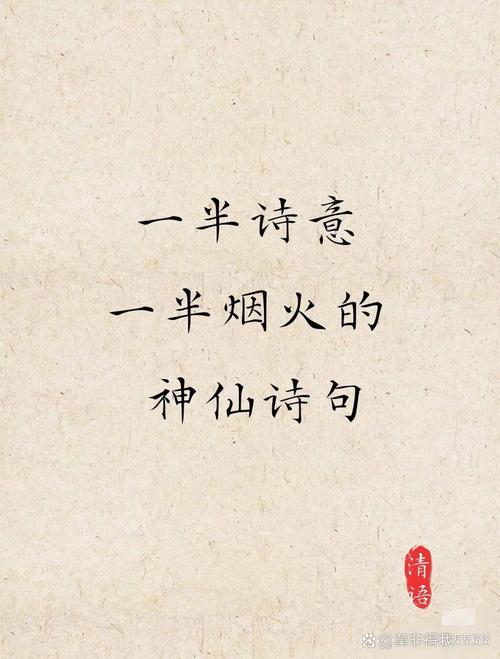 一半诗意
一半烟火的
神仙诗句
清
语
莫非得我5566